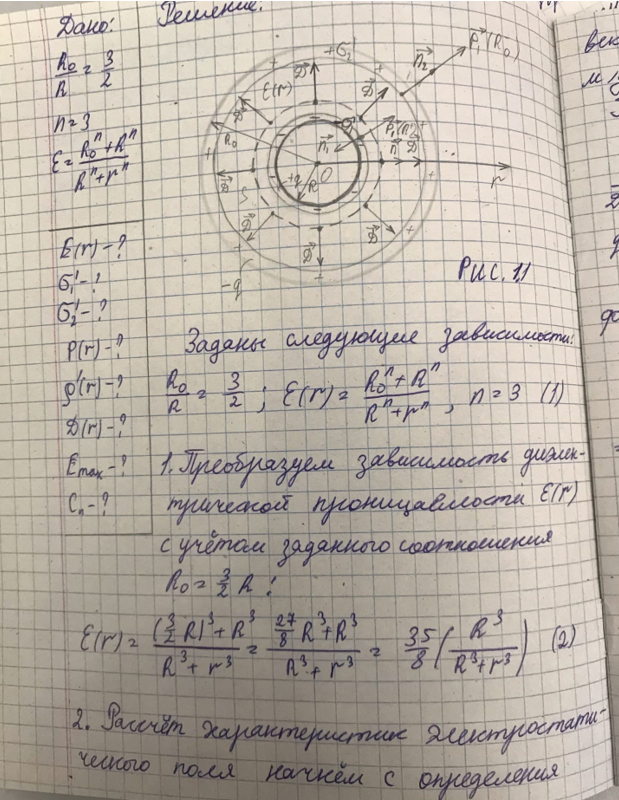 Дано:
R₀/R = 3/2
n = 3
ε = (R₀ⁿ + Rⁿ)/(Rⁿ + rⁿ)
E(r) - ?
σ₁' - ?
σ₂' - ?
P(r) - ?
ρ'(r) - ?
D(r) - ?
Emax - ?
Cп - ?
Решение.
+σ₁'
n₂
P₁(R₀)
ε(r)
D
D
D
R₀
n₁
n
D
+q
R
O
r
D
S
D
D
D
-q
РИС. 1.1
Заданы следующие зависимости:
R₀/R = 3/2 ; ε(r) = (R₀ⁿ + Rⁿ)/(Rⁿ + rⁿ) , n = 3 (1)
1. Преобразуем зависимость диэлек-
трической проницаемости ε(r)
с учётом заданного соотношения
R₀ = 3/2 R :
ε(r) = ((3/2 R)³ + R³)/(R³ + r³) = (27/8 R³ + R³)/(R³ + r³) = 35/8 (R³/(R³ + r³)) (2)
2. Рассчёт характеристик электростати-
ческого поля начнём с определения
век
м
D
q
фо